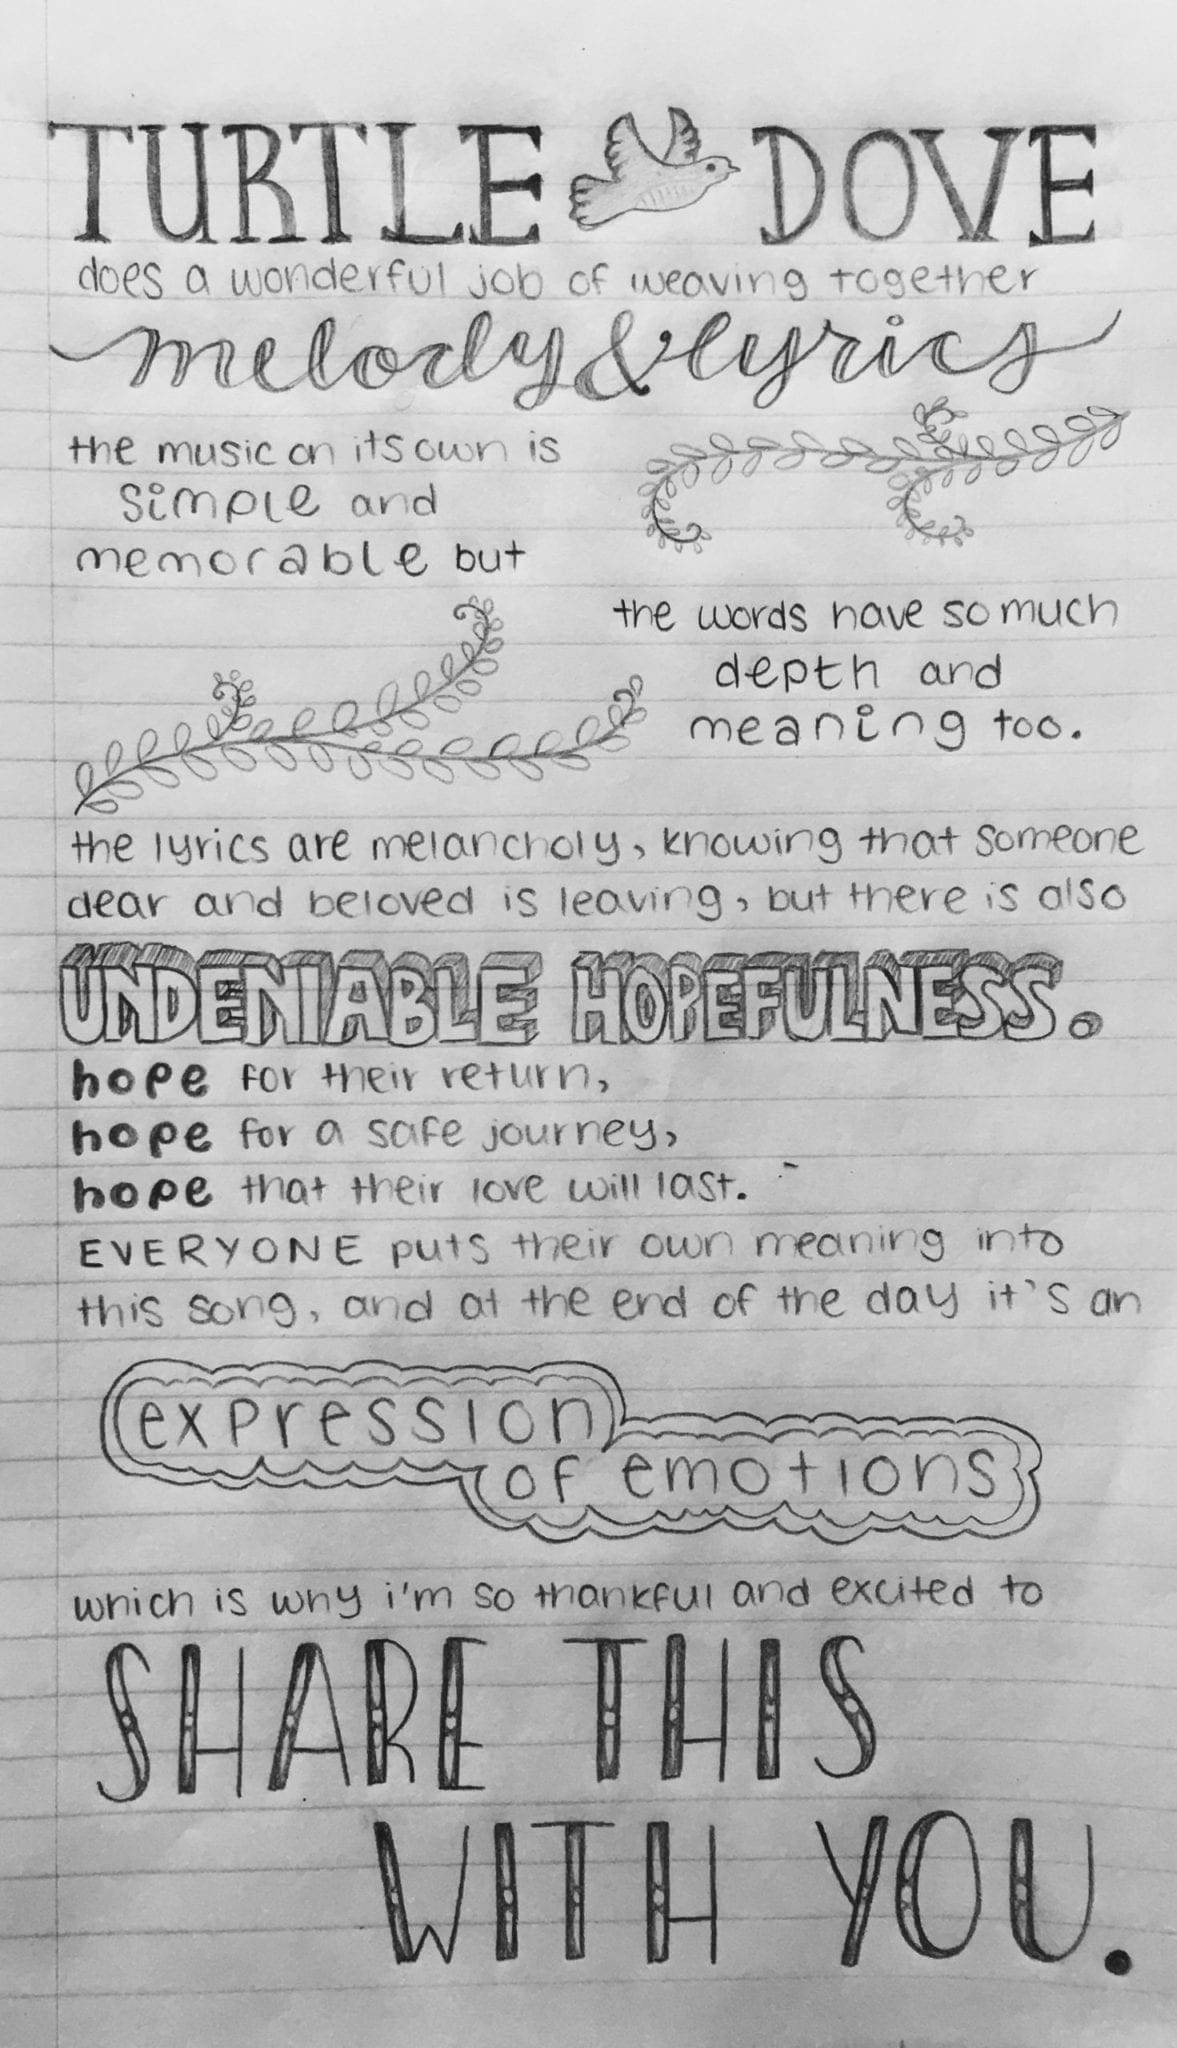 TURTLE DOVE
does a wonderful job of weaving together
melody & lyrics
the music on its own is
simple and
memorable but
the words have so much
depth and
meaning too.
the lyrics are melancholy, knowing that someone
dear and beloved is leaving, but there is also
UNDENIABLE HOPEFULNESS.
hope for their return,
hope for a safe journey,
hope that their love will last.
EVERYONE puts their own meaning into
this song, and at the end of the day it's an
expression
of emotions
which is why i'm so thankful and excited to
SHARE THIS
WITH YOU.